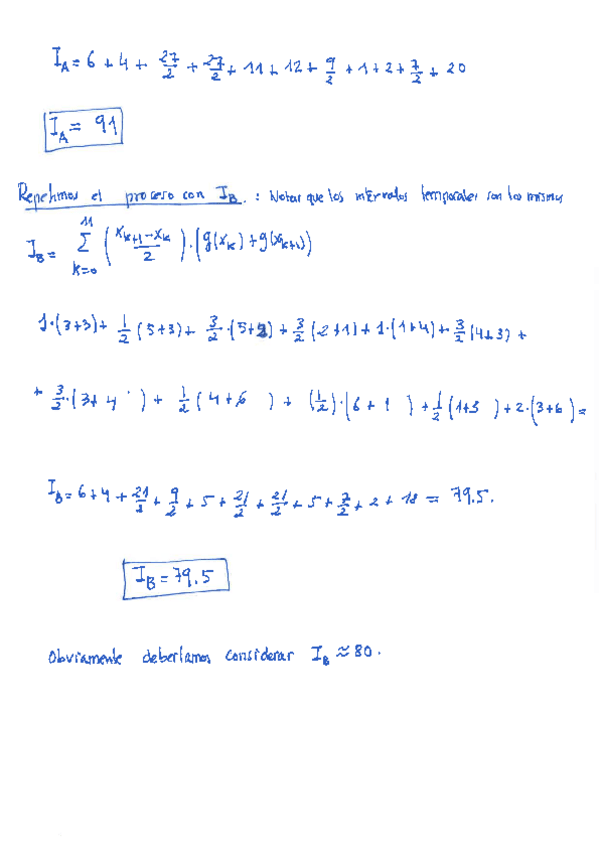 I_A = 6 + 4 + 27/2 + 27/2 + 11 + 12 + 9/2 + 1 + 2 + 7/2 + 20
I_A = 91
Repetimos el proceso con I_B. : Notar que los intervalos temporales son los mismos
I_B = ∑_{k=0}^{11} ( (x_{k+1} - x_k)/2 ) · ( g(x_k) + g(x_{k+1}) )
1·(3+3) + 1/2 (5+3) + 3/2 ·(5+2) + 3/2 (2+1) + 1·(1+4) + 3/2 (4+3) +
+ 3/2 ·(3+4) + 1/2 (4+6) + (1/2)·(6+1) + 1/2 (1+3) + 2·(3+6) =
I_B = 6 + 4 + 21/2 + 9/2 + 5 + 21/2 + 21/2 + 5 + 7/2 + 2 + 18 = 79.5.
I_B = 79.5
Obviamente deberíamos considerar I_B ≈ 80.